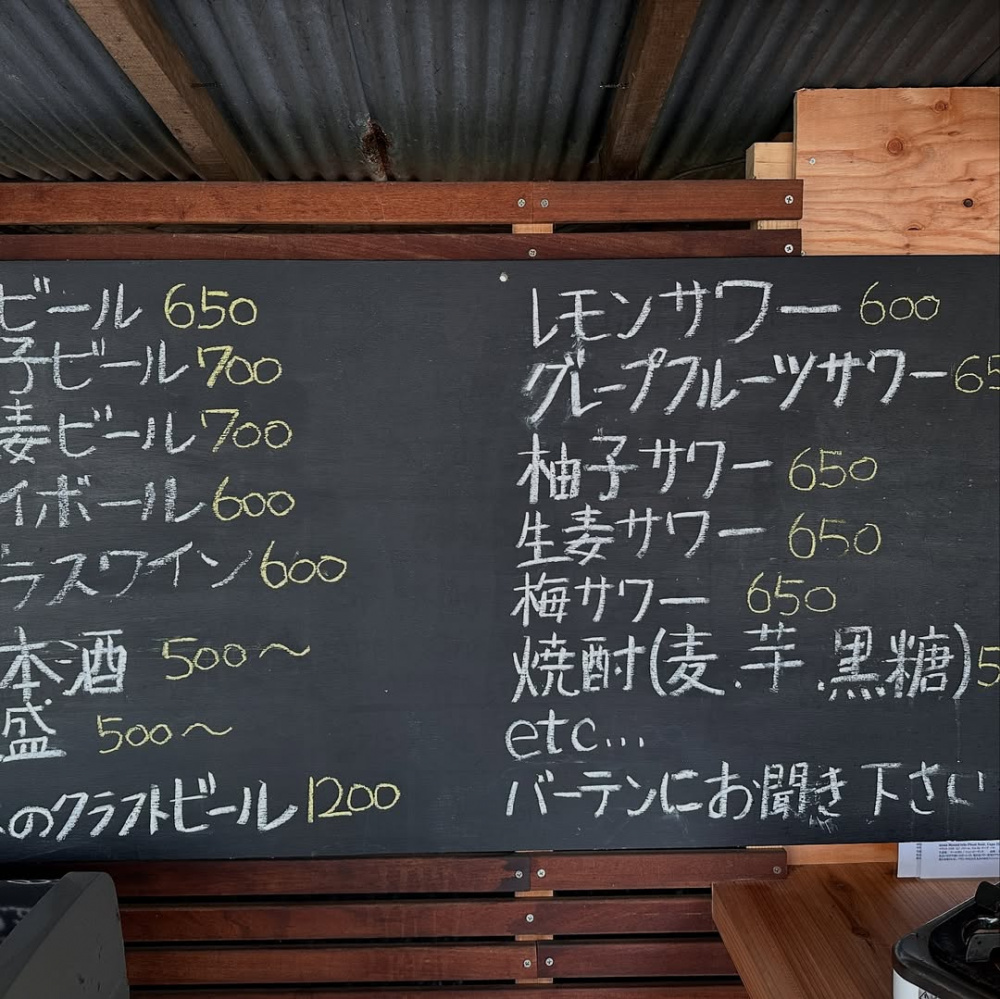 ビール 650
子ビール 700
麦ビール 700
イボール 600
ラスワイン 600
本酒 500〜
盛 500〜
のクラフトビール 1200
レモンサワー 600
グレープフルーツサワー 65
柚子サワー 650
生麦サワー 650
梅サワー 650
焼酎(麦.芋.黒糖) 5
etc...
バーテンにお聞き下さい